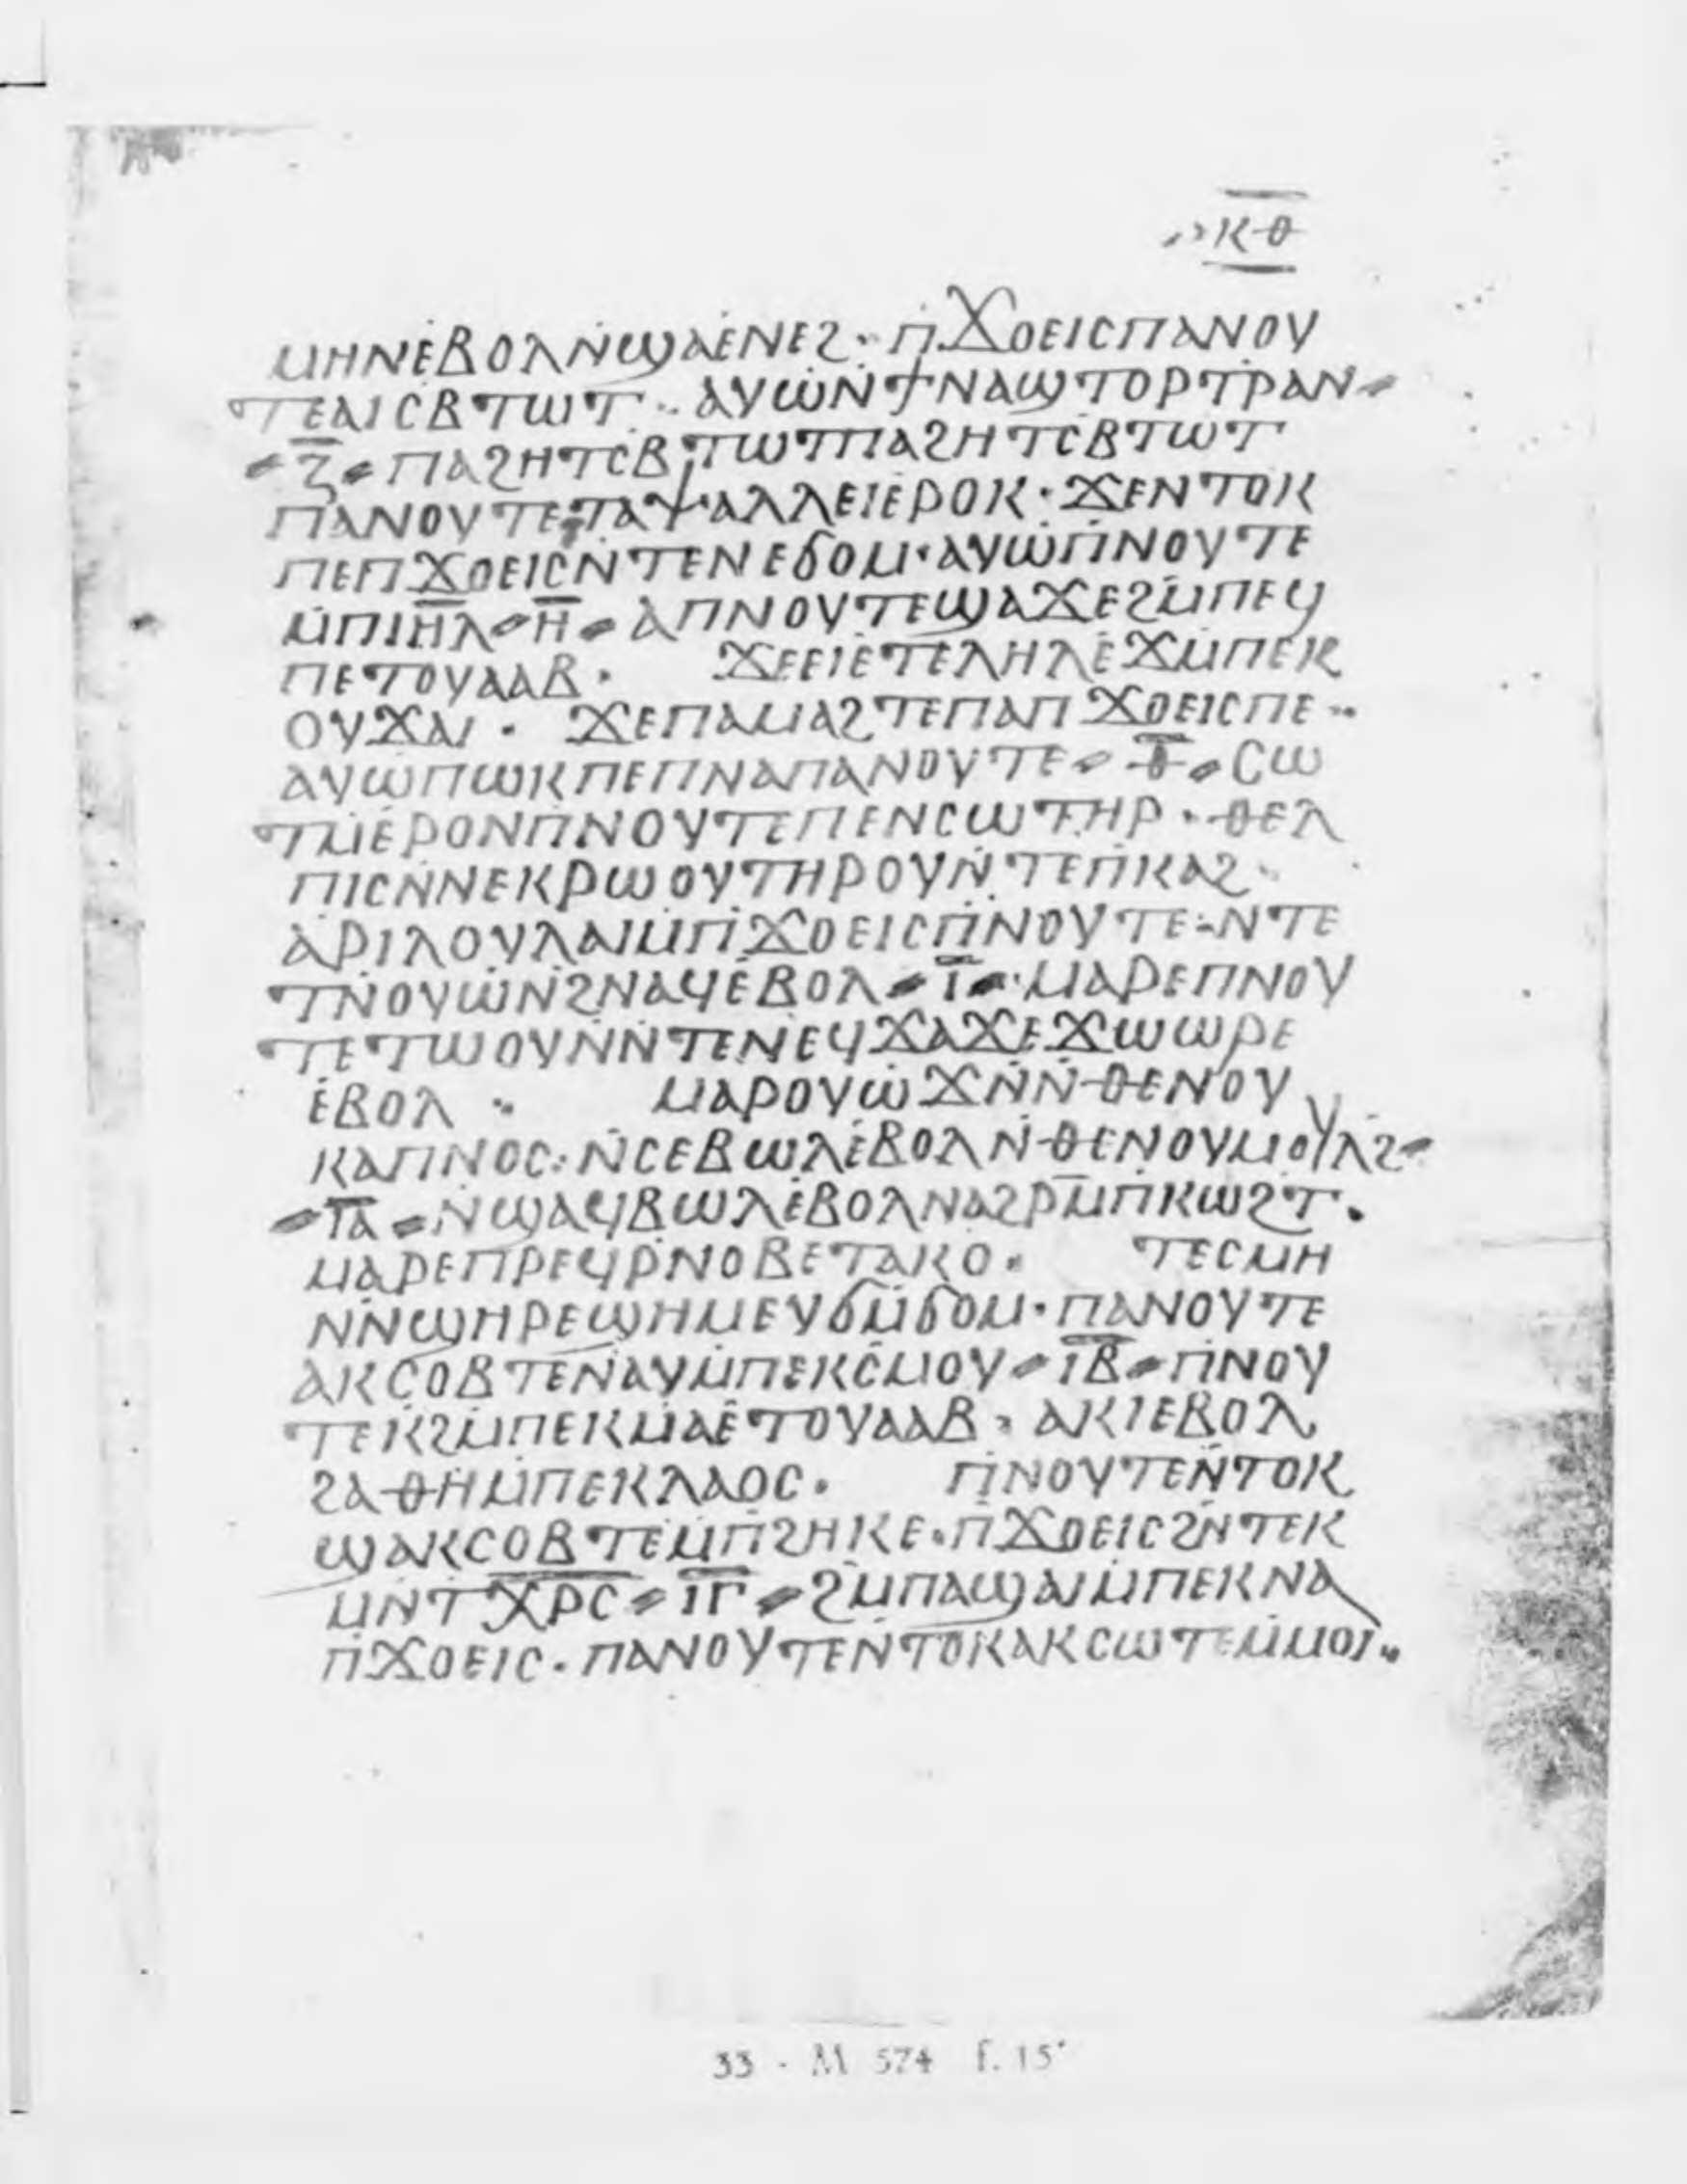 ⲕⲑ
ⲙⲏⲛⲉⲃⲟⲗⲛ̇ϣⲁⲉⲛⲉϩ·· ⲡ̇ϫⲟⲉⲓⲥⲡⲁⲛⲟⲩ
ⲧⲉⲁⲓⲥⲃⲧⲱⲧ·· ⲁⲩⲱⲛ̇ϯⲛⲁϣⲧⲟⲣⲧⲣ̇ⲁⲛ
ⲍ̅ ⲡⲁϩⲏⲧⲥⲃⲧⲱⲧⲡⲁϩⲏⲧⲥ̇ⲃⲧⲱⲧ
ⲡⲁⲛⲟⲩⲧⲉ·ⲧⲁⲯⲁⲗⲗⲉⲓⲉ̇ⲣⲟⲕ· ϫⲉⲛⲧⲟⲕ
ⲡⲉⲡϫⲟⲉⲓⲥⲛ̇ⲧⲉⲛⲉϭⲟⲙ·ⲁⲩⲱⲡ̇ⲛⲟⲩⲧⲉ
ⲙ̇ⲡⲓⲏ̅ⲗ̅ ⲏ̅ ⲁ̇ⲡⲛⲟⲩⲧⲉϣⲁϫⲉϩⲙ̇ⲡⲉϥ
ⲡⲉⲧⲟⲩⲁⲁⲃ· ϫⲉⲉⲓⲉ̇ⲧⲉⲗⲏⲗⲉ̇ϫⲙ̇ⲡⲉⲕ
ⲟⲩϫⲁⲓ· ϫⲉⲡⲁⲙⲁϩⲧⲉⲡⲁⲡϫⲟⲉⲓⲥⲡⲉ··
ⲁⲩⲱⲡⲱⲕⲡⲉⲡⲛⲁⲡⲁⲛⲟⲩⲧⲉ ⲑ̅ ⲥⲱ
ⲧⲙ̇ⲉ̇ⲣⲟⲛⲡ̇ⲛⲟⲩⲧⲉⲡⲉⲛⲥⲱⲧⲏⲣ· ⲑⲉⲗ
ⲡⲓⲥⲛ̇ⲛⲉⲕⲣⲱⲟⲩⲧⲏⲣⲟⲩⲛ̇ⲧⲉⲡ̇ⲕⲁϩ·
ⲁ̇ⲣⲓⲗⲟⲩⲗⲁⲓⲙ̇ⲡ̇ϫⲟⲉⲓⲥⲡ̇ⲛⲟⲩⲧⲉ·ⲛⲧⲉ
ⲧⲛ̇ⲟⲩⲱⲛ̇ϩⲛⲁϥⲉ̇ⲃⲟⲗ ⲓ̅ ⲙⲁⲣⲉⲡⲛⲟⲩ
ⲧⲉⲧⲱⲟⲩⲛ̇ⲛ̇ⲧⲉⲛⲉϥϫⲁϫⲉϫⲱⲱⲣⲉ
ⲉ̇ⲃⲟⲗ·· ⲙⲁⲣⲟⲩⲱϫⲛ̇ⲛ̇ⲑⲉⲛⲟⲩ
ⲕⲁⲡⲛⲟⲥ: ⲛ̇ⲥⲉⲃⲱⲗⲉ̇ⲃⲟⲗⲛ̇ⲑⲉⲛⲟⲩⲙⲟⲩⲗϩ
ⲓ̅ⲁ̅ ⲛ̇ϣⲁϥⲃⲱⲗⲉ̇ⲃⲟⲗⲛⲁϩⲣⲙ̇ⲡ̇ⲕⲱϩⲧ·
ⲙⲁⲣⲉⲡⲣⲉϥⲣ̇ⲛⲟⲃⲉⲧⲁⲕⲟ· ⲧⲉⲥⲙⲏ
ⲛⲛϣⲏⲣⲉϣⲏⲙⲉⲩϭⲙ̇ϭⲟⲙ·ⲡⲁⲛⲟⲩⲧⲉ
ⲁⲕⲥⲟⲃⲧⲉⲛ̇ⲁⲩⲙ̇ⲡⲉⲕⲥ̇ⲙⲟⲩ ⲓ̅ⲃ̅ ⲡ̇ⲛⲟⲩ
ⲧⲉⲕϩⲙ̇ⲡⲉⲕⲙⲁⲉ̇ⲧⲟⲩⲁⲁⲃ· ⲁⲕⲓⲉⲃⲟⲗ
ϩⲁⲑⲏⲙ̇ⲡⲉⲕⲗⲁⲟⲥ· ⲡ̇ⲛⲟⲩⲧⲉⲛ̇ⲧⲟⲕ
ϣⲁⲕⲥⲟⲃⲧⲉⲙ̇ⲡ̇ϩⲏⲕⲉ·ⲡ̇ϫⲟⲉⲓⲥϩⲛ̇ⲧⲉⲕ
ⲙⲛⲧⲭ̅ⲣ̅ⲥ̅ ⲓ̅ⲅ̅ ϩⲙⲡⲁϣⲁⲓⲙ̇ⲡⲉⲕⲛⲁ
ⲡ̇ϫⲟⲉⲓⲥ·ⲡⲁⲛⲟⲩⲧⲉⲛ̇ⲧⲟⲕⲁⲕⲥⲱⲧⲉⲙ̇ⲙⲟⲓ··
33 - M 574 f. 15ʳ